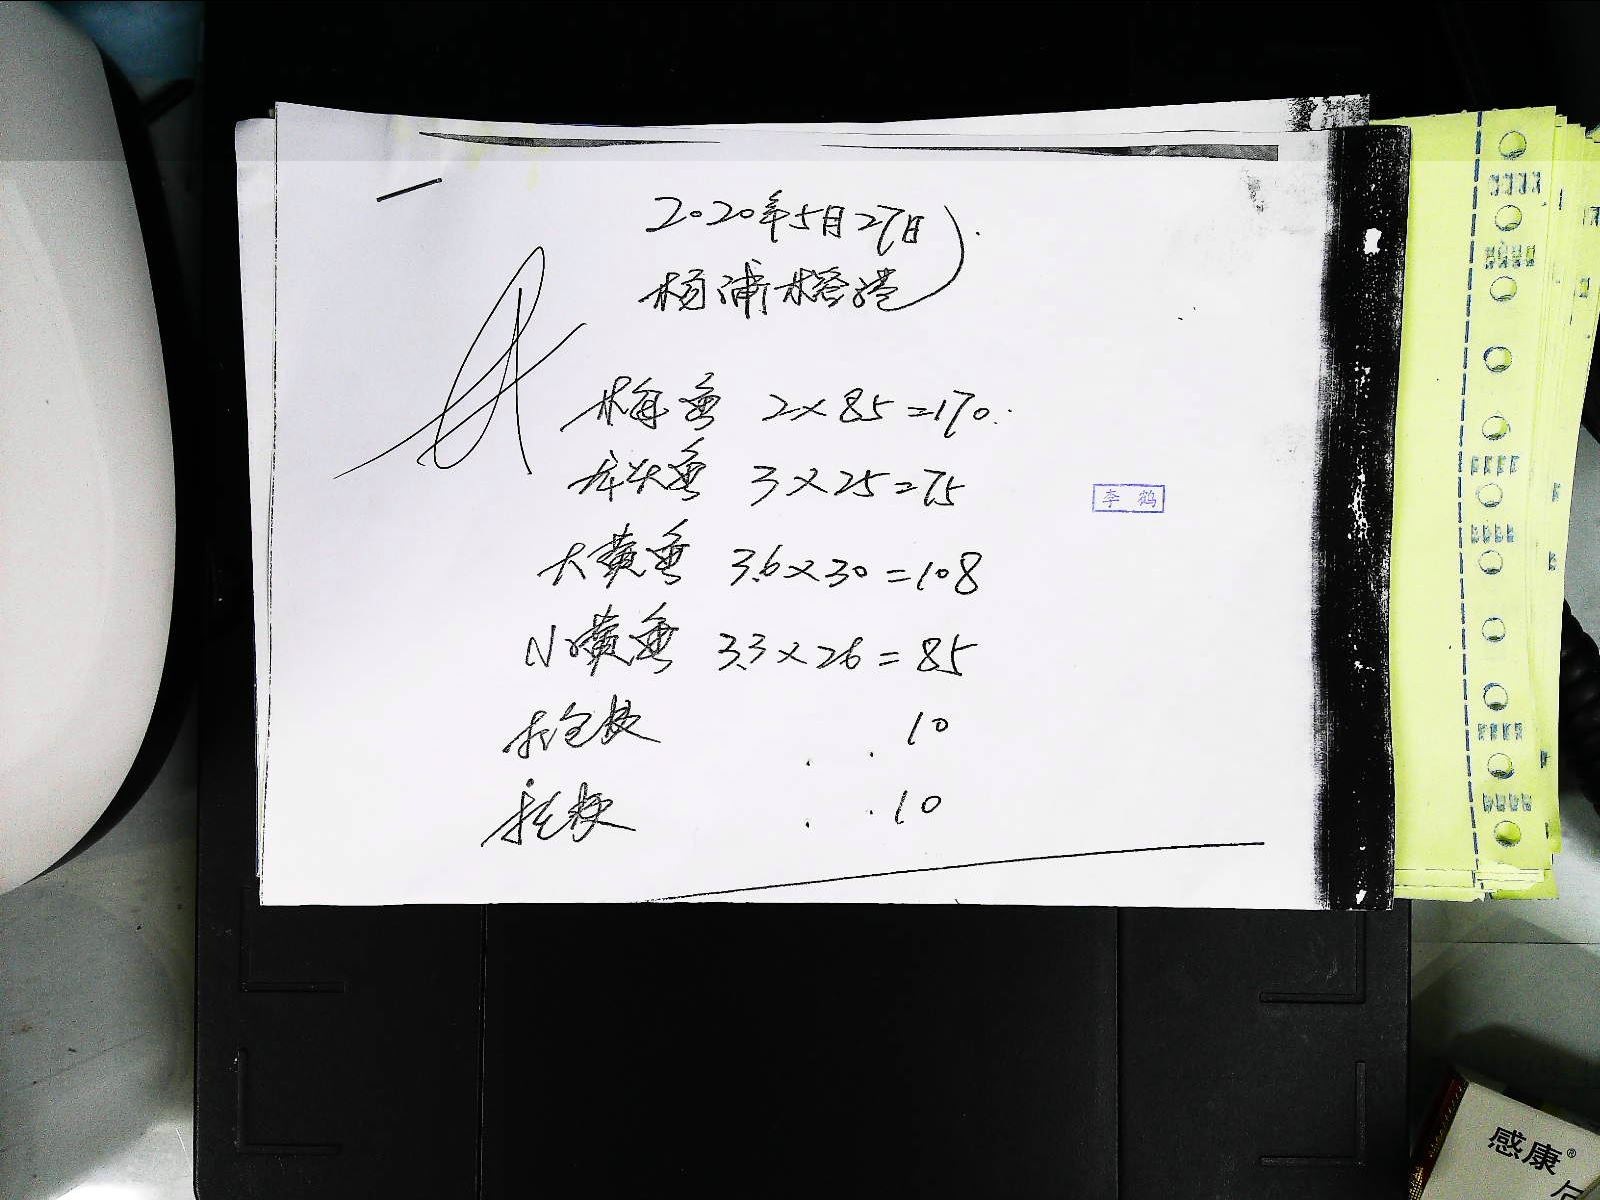 2020年5月27日
杨浦榕港
梅鱼 2×85=170
大黄鱼 3.6×30=108
小黄鱼 3.3×26=85
10
10
3×25=75
李鹤
感康®